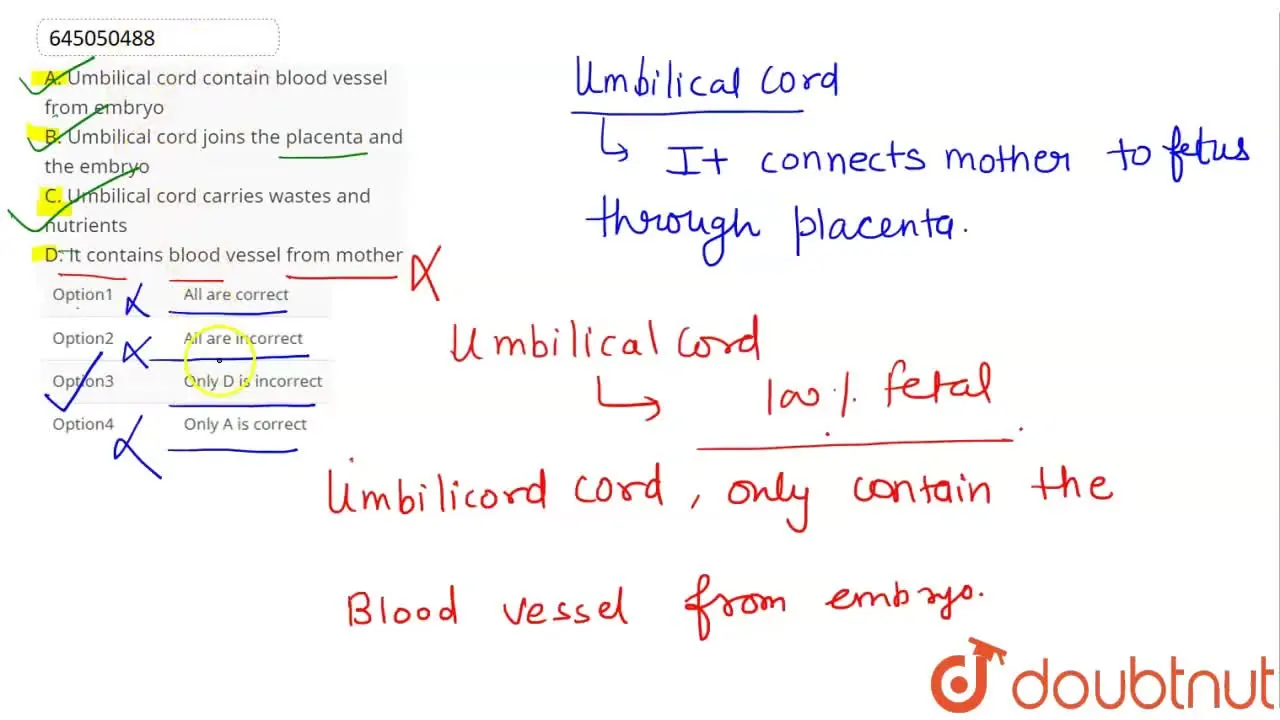 645050488
A. Umbilical cord contain blood vessel
from embryo
B. Umbilical cord joins the placenta and
the embryo
C. Umbilical cord carries wastes and
nutrients
D. It contains blood vessel from mother
Option1 All are correct
Option2 All are incorrect
Option3 Only D is incorrect
Option4 Only A is correct
Umbilical cord
It connects mother to fetus
through placenta.
Umbilical cord
100%. fetal
Umbilicord cord, only contain the
Blood vessel from embryo.
doubtnut